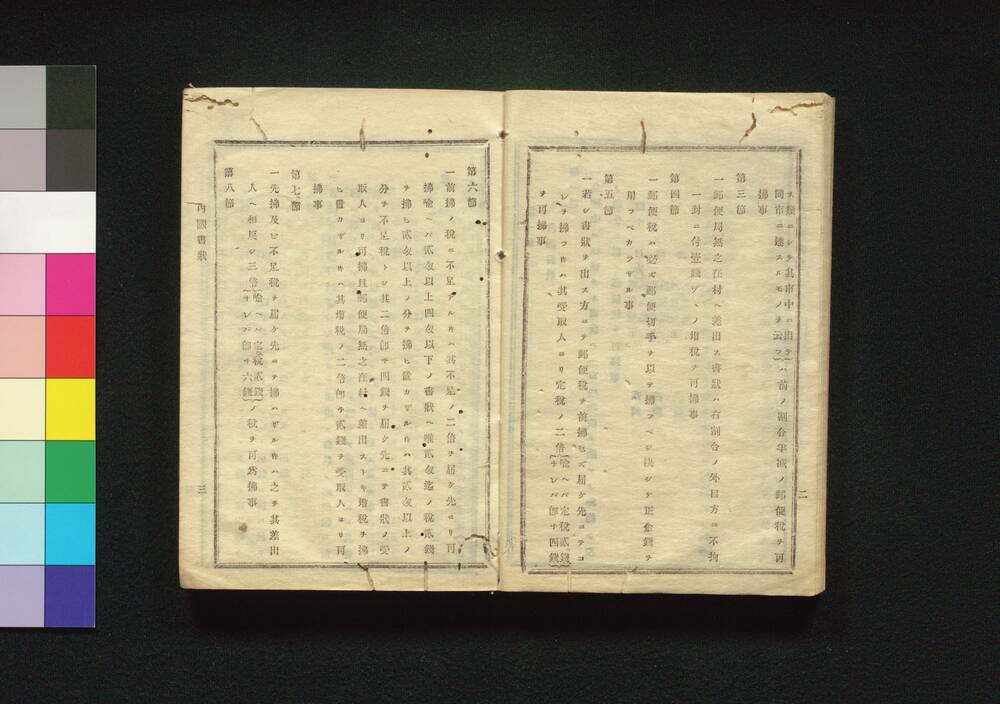 ス類ニシテ其市中ニ出テ同市ニ達スルモノヲ云フハ前ノ割合半減ノ郵便税ヲ可
拂事
第三節
一郵便局無之在村ヘ差出ス書狀ハ右割合ノ外目方ニ不拘
一封ニ付壹錢ヅヽノ增税ヲ可拂事
第四節
一郵便税ハ必ズ郵便切手ヲ以テ拂フベシ決シテ正金錢ヲ
用フベカラザル事
第五節
一若シ書狀ヲ出ス方ニテ郵便税ヲ前拂セズ屆ケ先ニテコ
レヲ拂フ時ハ其受取人ヨリ定税ノ二倍喩ヘバ定税貳錢ナレバ即チ四錢
ヲ可拂事
二
第六節
一前拂ノ税ニ不足アル時ハ其不足ノ二倍ヲ屆ケ先ヨリ可
拂喩ヘバ貳匁以上四匁以下ノ書狀ヘ唯貳匁迄ノ税貳錢
ヲ拂ヒ貳匁以上ノ分ヲ拂ヒ置カザル時ハ其貳匁以上ノ
分ヲ不足税トシ其二倍即チ四錢ヲ屆ケ先ニテ書狀ノ受
取人ヨリ可拂且郵便局無之在村ヘ差出ストキ增税ヲ拂
ヒ置カザル時ハ其增税ノ二倍即チ貳錢ヲ受取人ヨリ可
拂事
第七節
一先拂及ヒ不足税ヲ屆ケ先ニテ拂ハザル時ハ之ヲ其差出
人ヘ相戾シ三倍喩ヘバ定税貳錢ナレバ即チ六錢ノ税ヲ可爲拂事
第八節
內國書狀
三